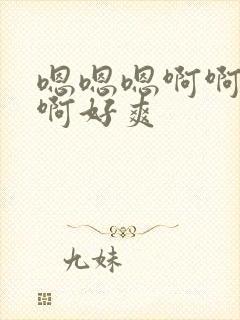 嗯嗯嗯啊啊
啊好爽
九妹